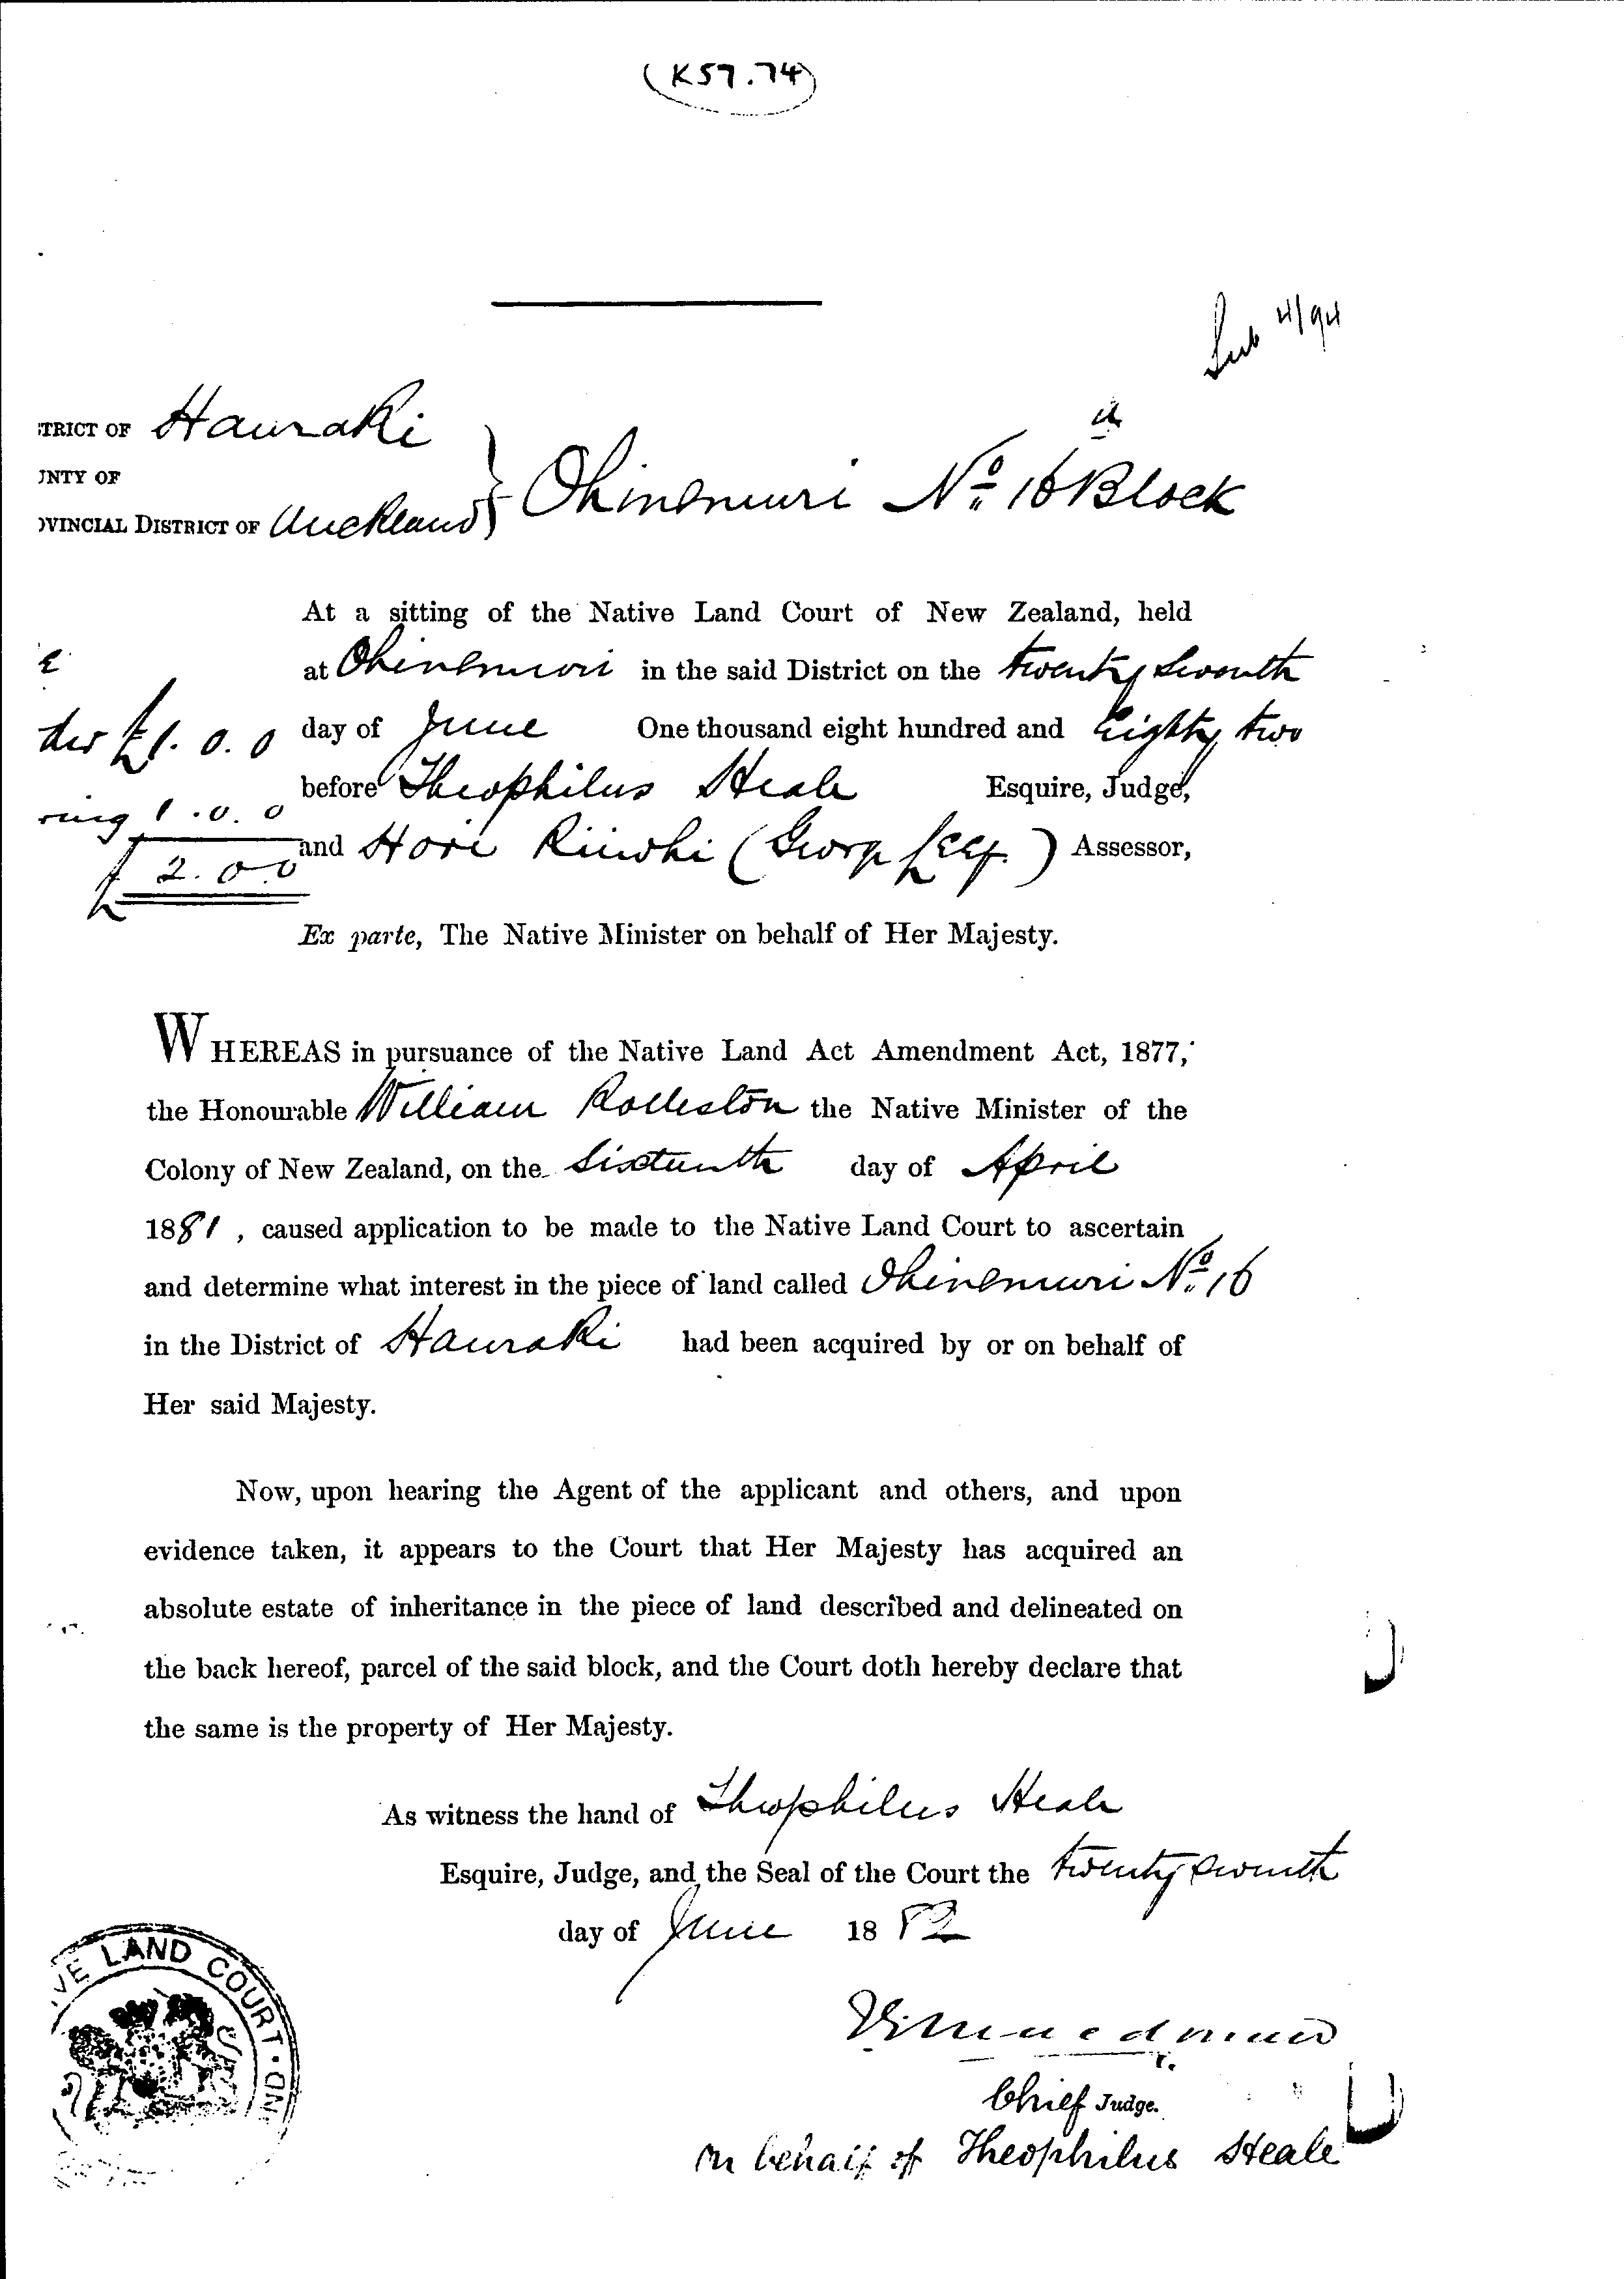 (K57.74)
Sub 4/94
TRICT OF Hauraki
UNTY OF
OVINCIAL DISTRICT OF Auckland } Ohinemuri No. 16 Block
At a sitting of the Native Land Court of New Zealand, held
at Ohinemuri in the said District on the twenty seventh
der £1. 0. 0 day of June One thousand eight hundred and Eighty two
before Theophilus Heale Esquire, Judge,
ring 1. 0. 0
and Hori Ririwhi (George ) Assessor,
£ 2. 0 0
Ex parte, The Native Minister on behalf of Her Majesty.
WHEREAS in pursuance of the Native Land Act Amendment Act, 1877,
the Honourable William Rolleston the Native Minister of the
Colony of New Zealand, on the Sixteenth day of April
1881, caused application to be made to the Native Land Court to ascertain
and determine what interest in the piece of land called Ohinemuri No. 16
in the District of Hauraki had been acquired by or on behalf of
Her said Majesty.
Now, upon hearing the Agent of the applicant and others, and upon
evidence taken, it appears to the Court that Her Majesty has acquired an
absolute estate of inheritance in the piece of land described and delineated on
the back hereof, parcel of the said block, and the Court doth hereby declare that
the same is the property of Her Majesty.
As witness the hand of Theophilus Heale
Esquire, Judge, and the Seal of the Court the twenty seventh
day of June 1882
IVE LAND COURT · ND
Chief Judge.
on behalf of Theophilus Heale